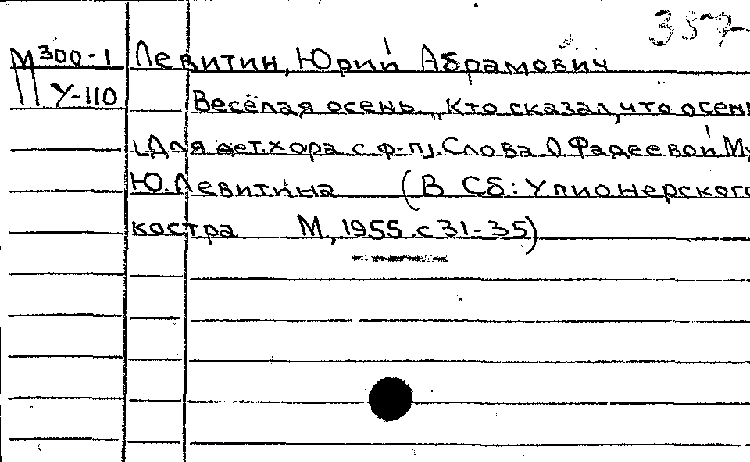 357
М300-1 Левитин, Юрий Абрамович
У-110 Весёлая осень „Кто сказал, что осень
[Для дет.хора с ф-п]. Слова О.Фадеевой Му
Ю.Левитина (В Сб: У пионерского
костра М, 1955. с 31-35)